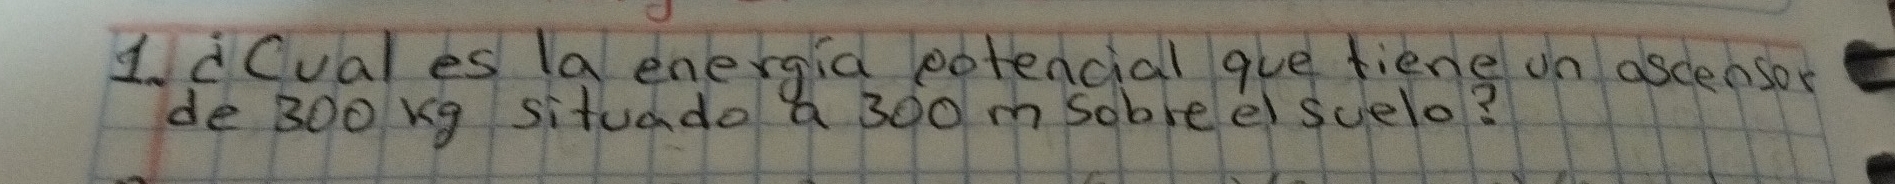 1. ¿Cual es la energía potencial que tiene un ascensor
de 300 kg situado a 300 m sobre el suelo?